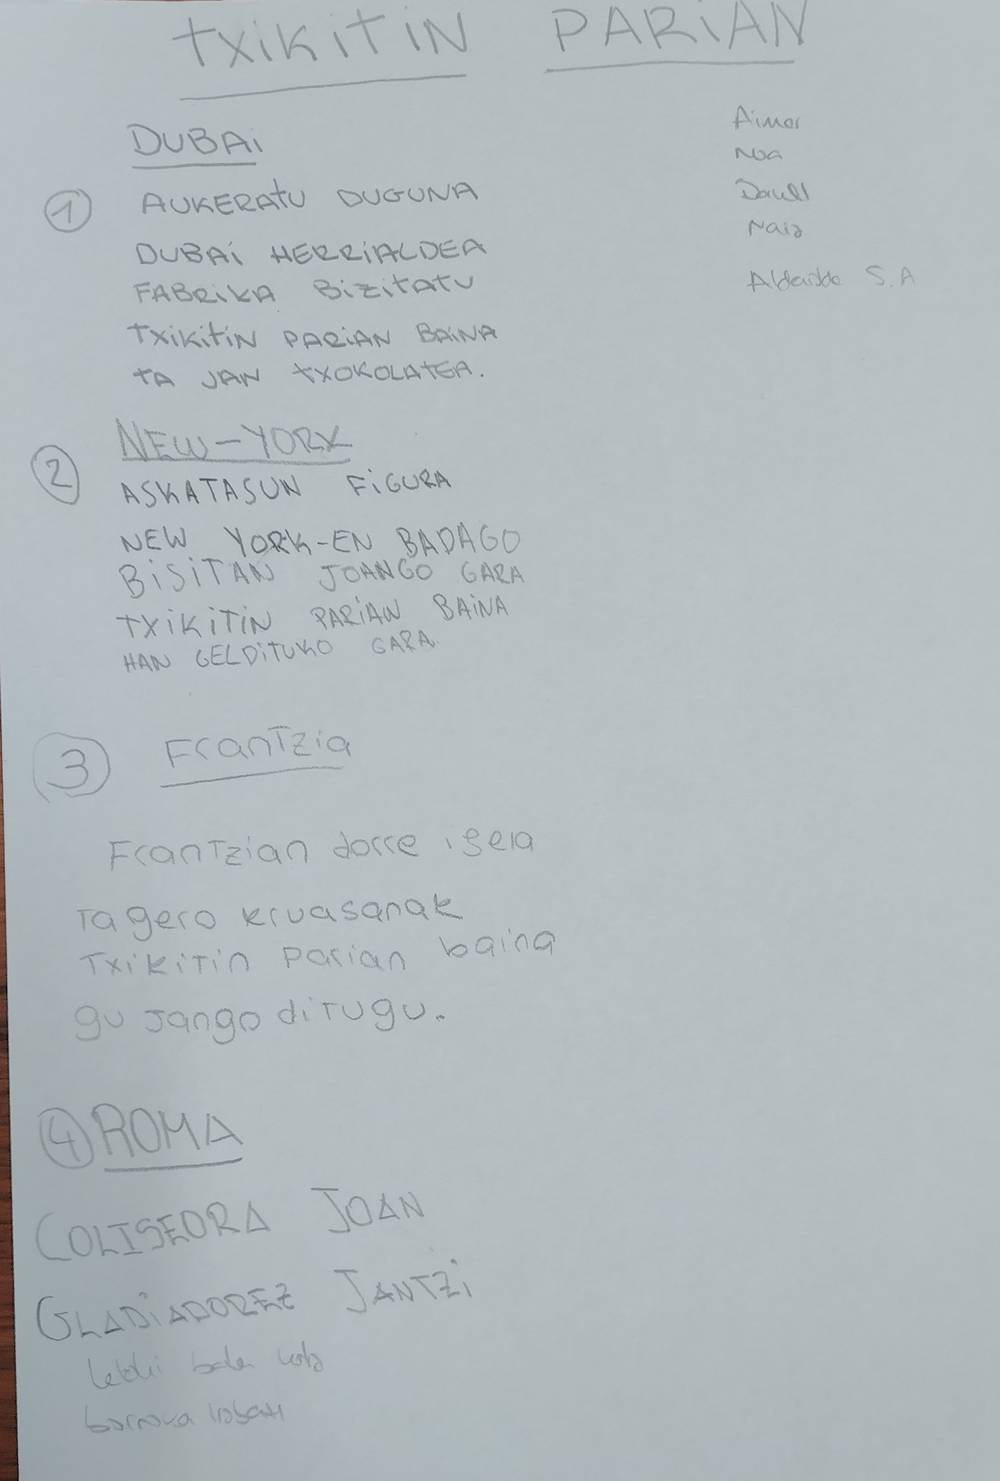 TXIKITIN PARIAN
DUBAI
① AUKERATU DUGUNA
DUBAI HERRIALDEA
FABRIKA BIZITATU
TXIKITIN PARIAN BAINA
TA JAN TXOKOLATEA.
Aimar
Noa
Naia
S.A
② NEW-YORK
ASKATASUN FIGURA
NEW YORK-EN BADAGO
BISITAN JOANGO GARA
TXIKITIN PARIAN BAINA
HAN GELDITUKO GARA.
③ Frantzia
Frantzian dorre igela
Ta gero kruasanak
Txikitin Parian baina
gu Jango ditugu.
④ ROMA
COLISEORA JOAN
GLADIADOREZ JANTZI